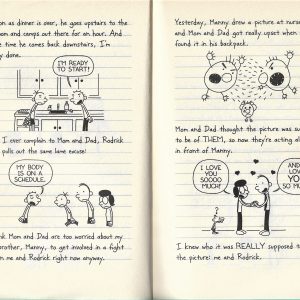 on as dinner is over, he goes upstairs to the
oom and camps out there for an hour. And
e time he comes back downstairs, I'm
y done.
I'M READY
TO START!
I ever complain to Mom and Dad, Rodrick
pulls out the same lame excuse:
MY BODY
IS ON A
SCHEDULE.
nk Mom and Dad are too worried about my
brother, Manny, to get involved in a fight
n me and Rodrick right now anyway.
Yesterday, Manny drew a picture at nurse
and Mom and Dad got really upset when
found it in his backpack.
Mom and Dad thought the picture was su
to be of THEM, so now they're acting al
in front of Manny.
I LOVE
YOU
SOOOO
MUCH!
AND
LOVE
YO
SO M
I knew who it was REALLY supposed t
the picture: me and Rodrick.